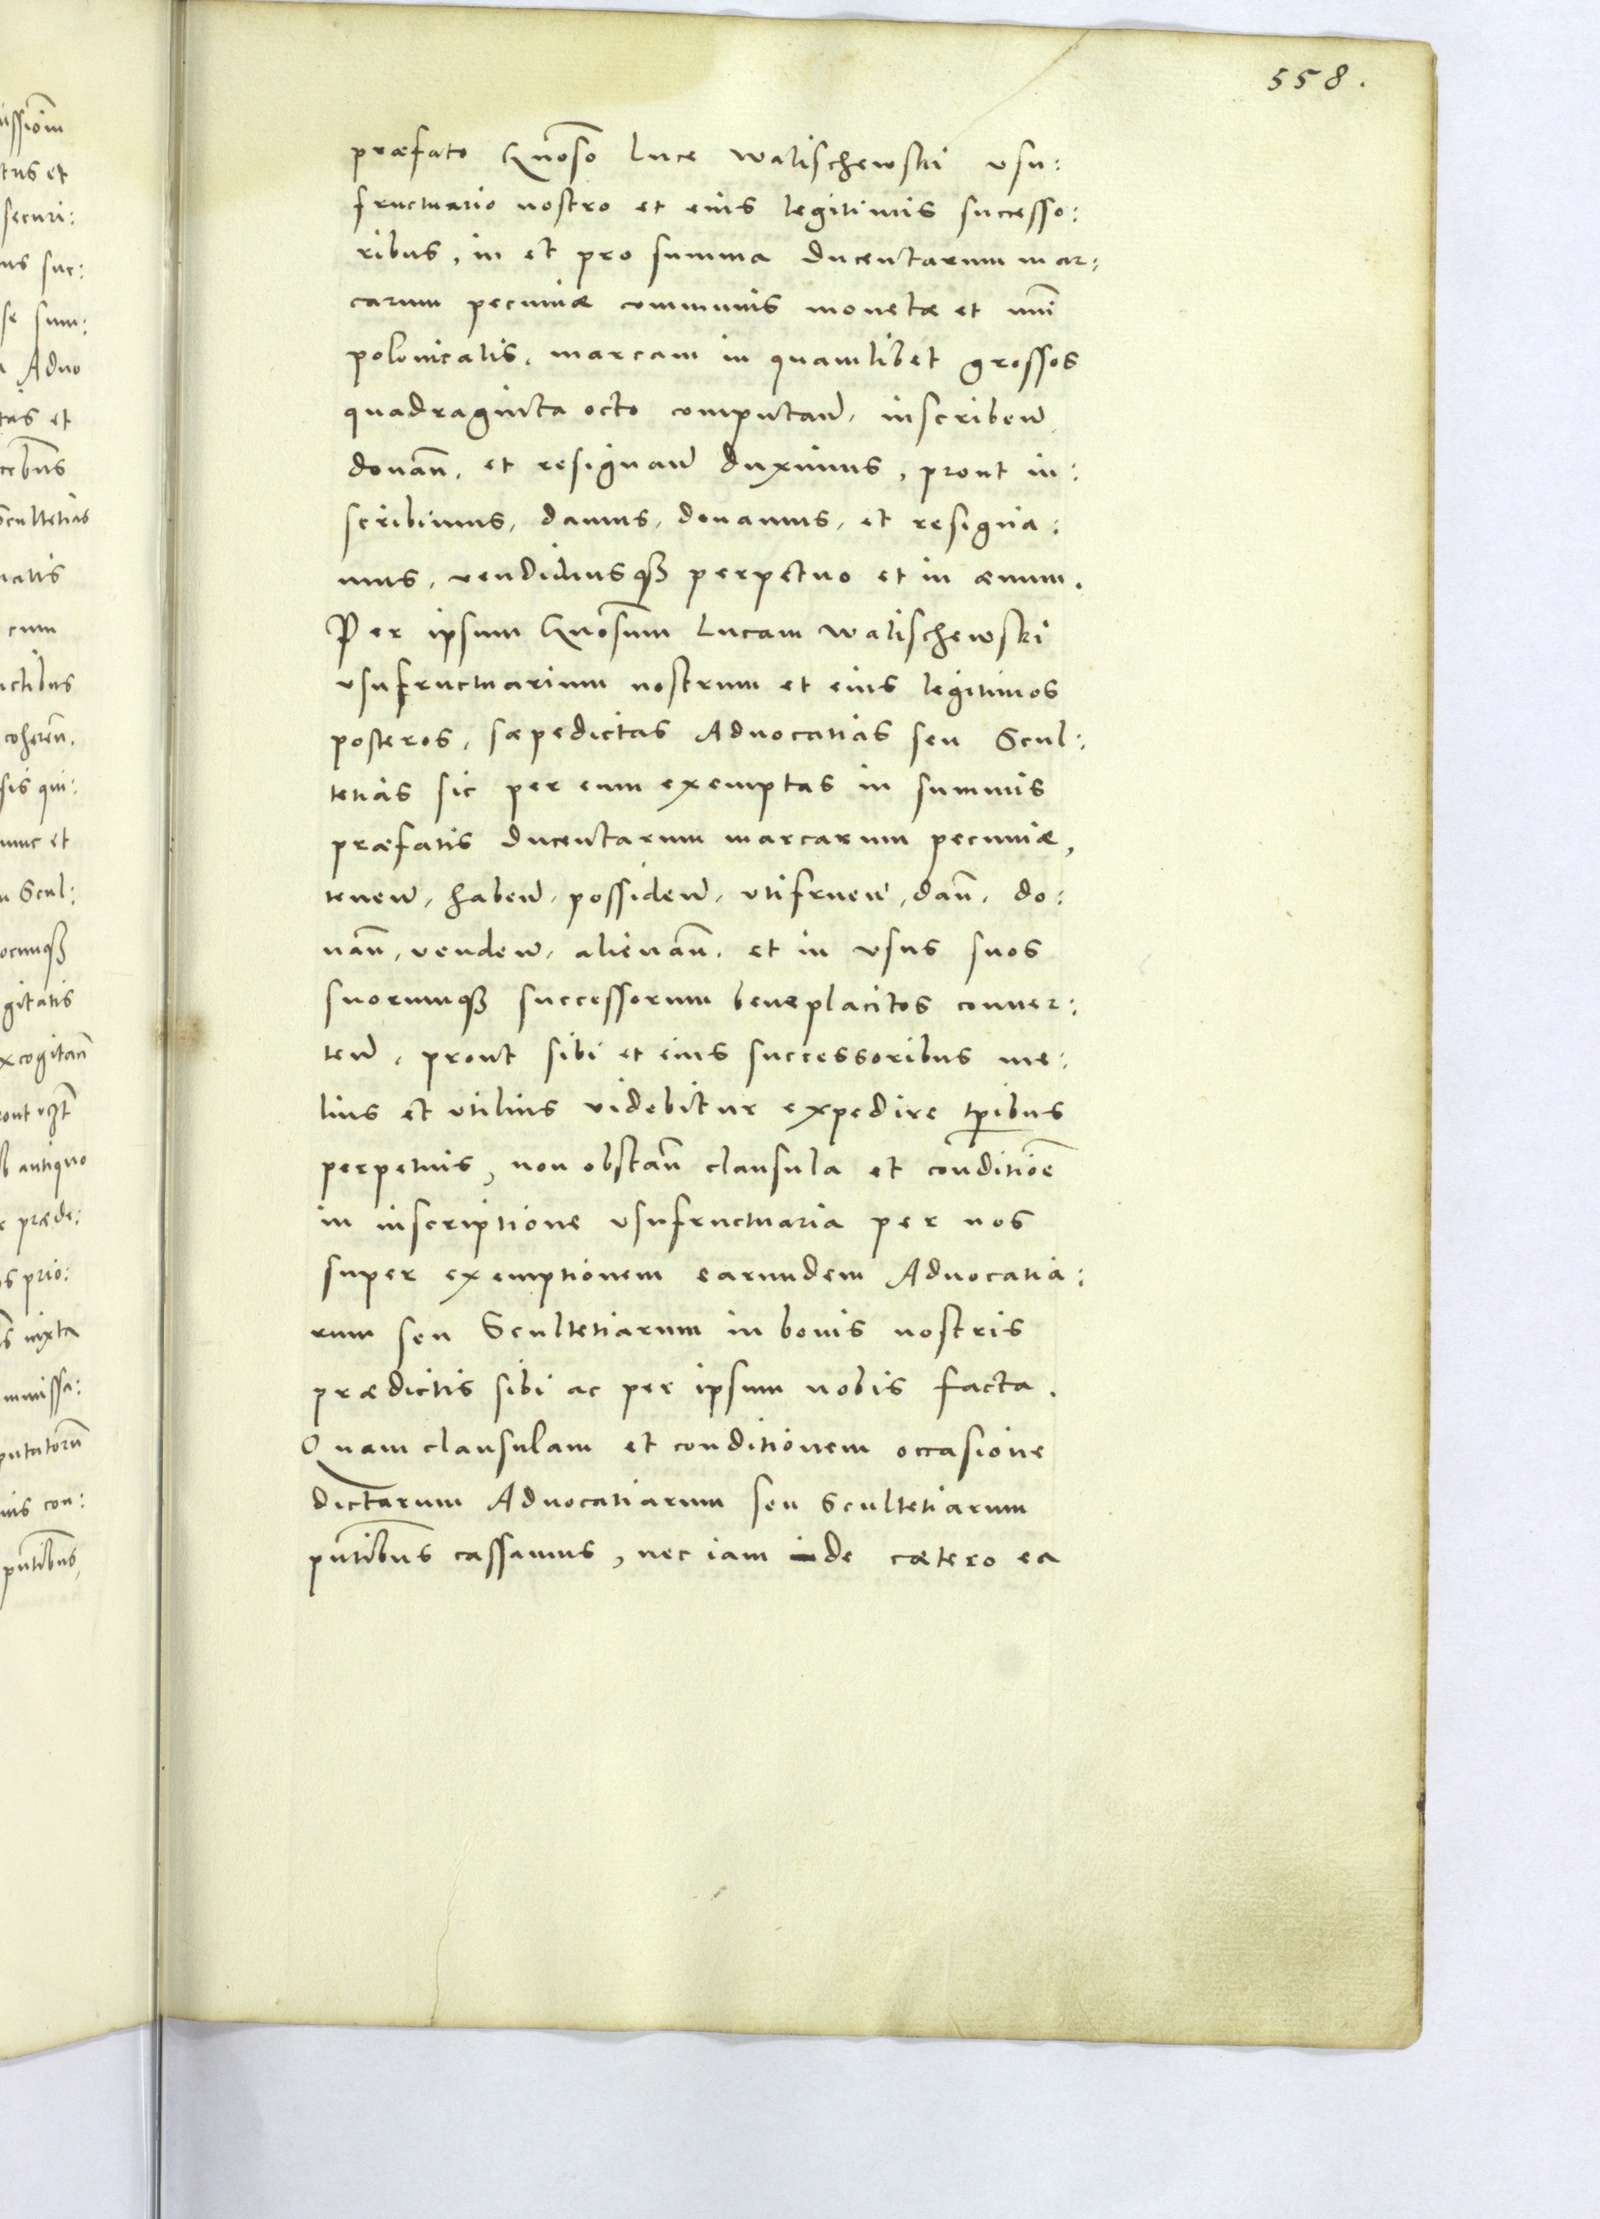 558.
præfato Gñoso Luce Walischewski vsu:
fructuario nostro et eius legitimis successo:
ribus, in et pro summa ducentarum mar:
carum pecuniæ communis monetæ et nūi
polonicalis, marcam in quamlibet grossos
quadraginta octo computañ, inscribeñ
donañ, et resignañ duximus, prout in:
scribimus, damus, donamus, et resigna:
mus, vendidimusqȝ perpetuo et in æuum.
Per ipsum Gñosum Lucam Walischewski
vsufructuarium nostrum et eius legitimos
posteros, sæpedictas Aduocatias seu Scul:
tetias sic per eum exemptas in summis
præfatis ducentarum marcarum pecuniæ,
teneñ, habeñ, possideñ, vtifrueñ, dañ, do:
nañ, vendeñ, alienañ, et in vsus suos
suorumqȝ successorum beneplacitos conuer:
teñ, prout sibi et eius successoribus me:
lius et vtilius videbitur expedire tpibus
perpetuis, non obstañ clausula et conditiōe
in inscriptione vsufructuaria per nos
super exemptionem earundem Aduocatia:
rum seu Scultetiarum in bonis nostris
prædictis sibi ac per ipsum nobis facta.
Quam clausulam et conditionem occasione
dictarum Aduocatiarum seu Scultetiarum
pñtibus cassamus, nec iam inde cætero ea